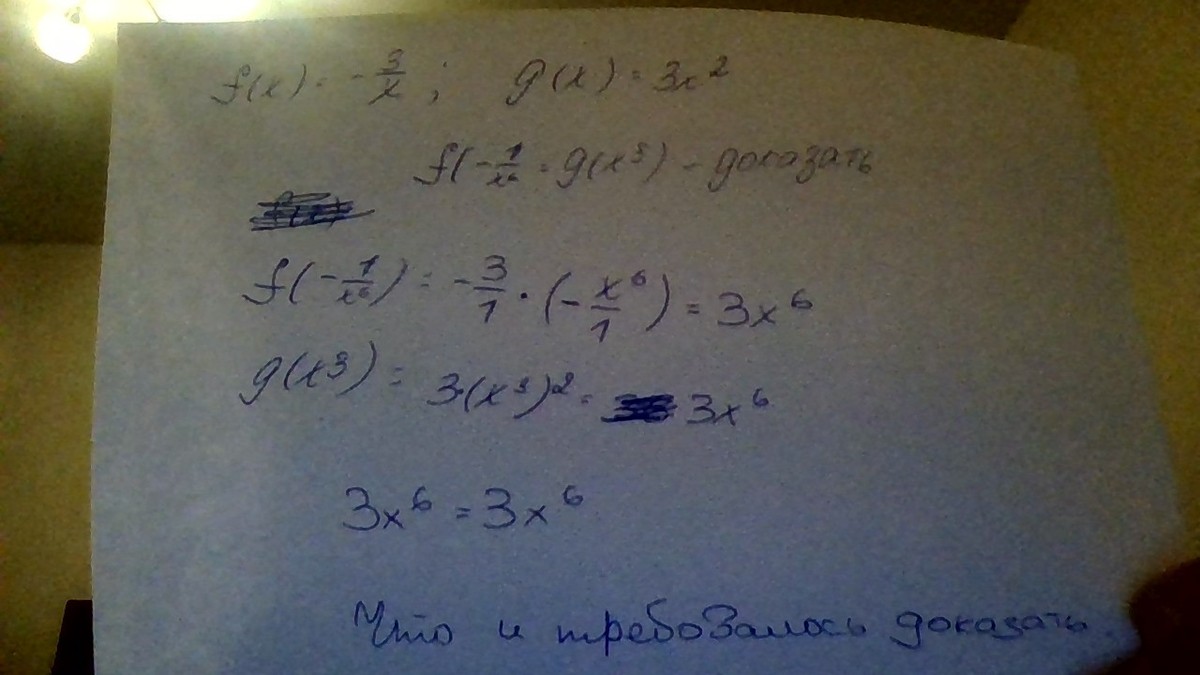 f(x) = -3/x ; g(x) = 3x²
f(-1/x⁶ = g(x³) - доказать
f(-1/x⁶) = -3/1 · (-x⁶/1) = 3x⁶
g(x³) = 3·(x³)² = 3x⁶
3x⁶ = 3x⁶
Что и требовалось доказать.